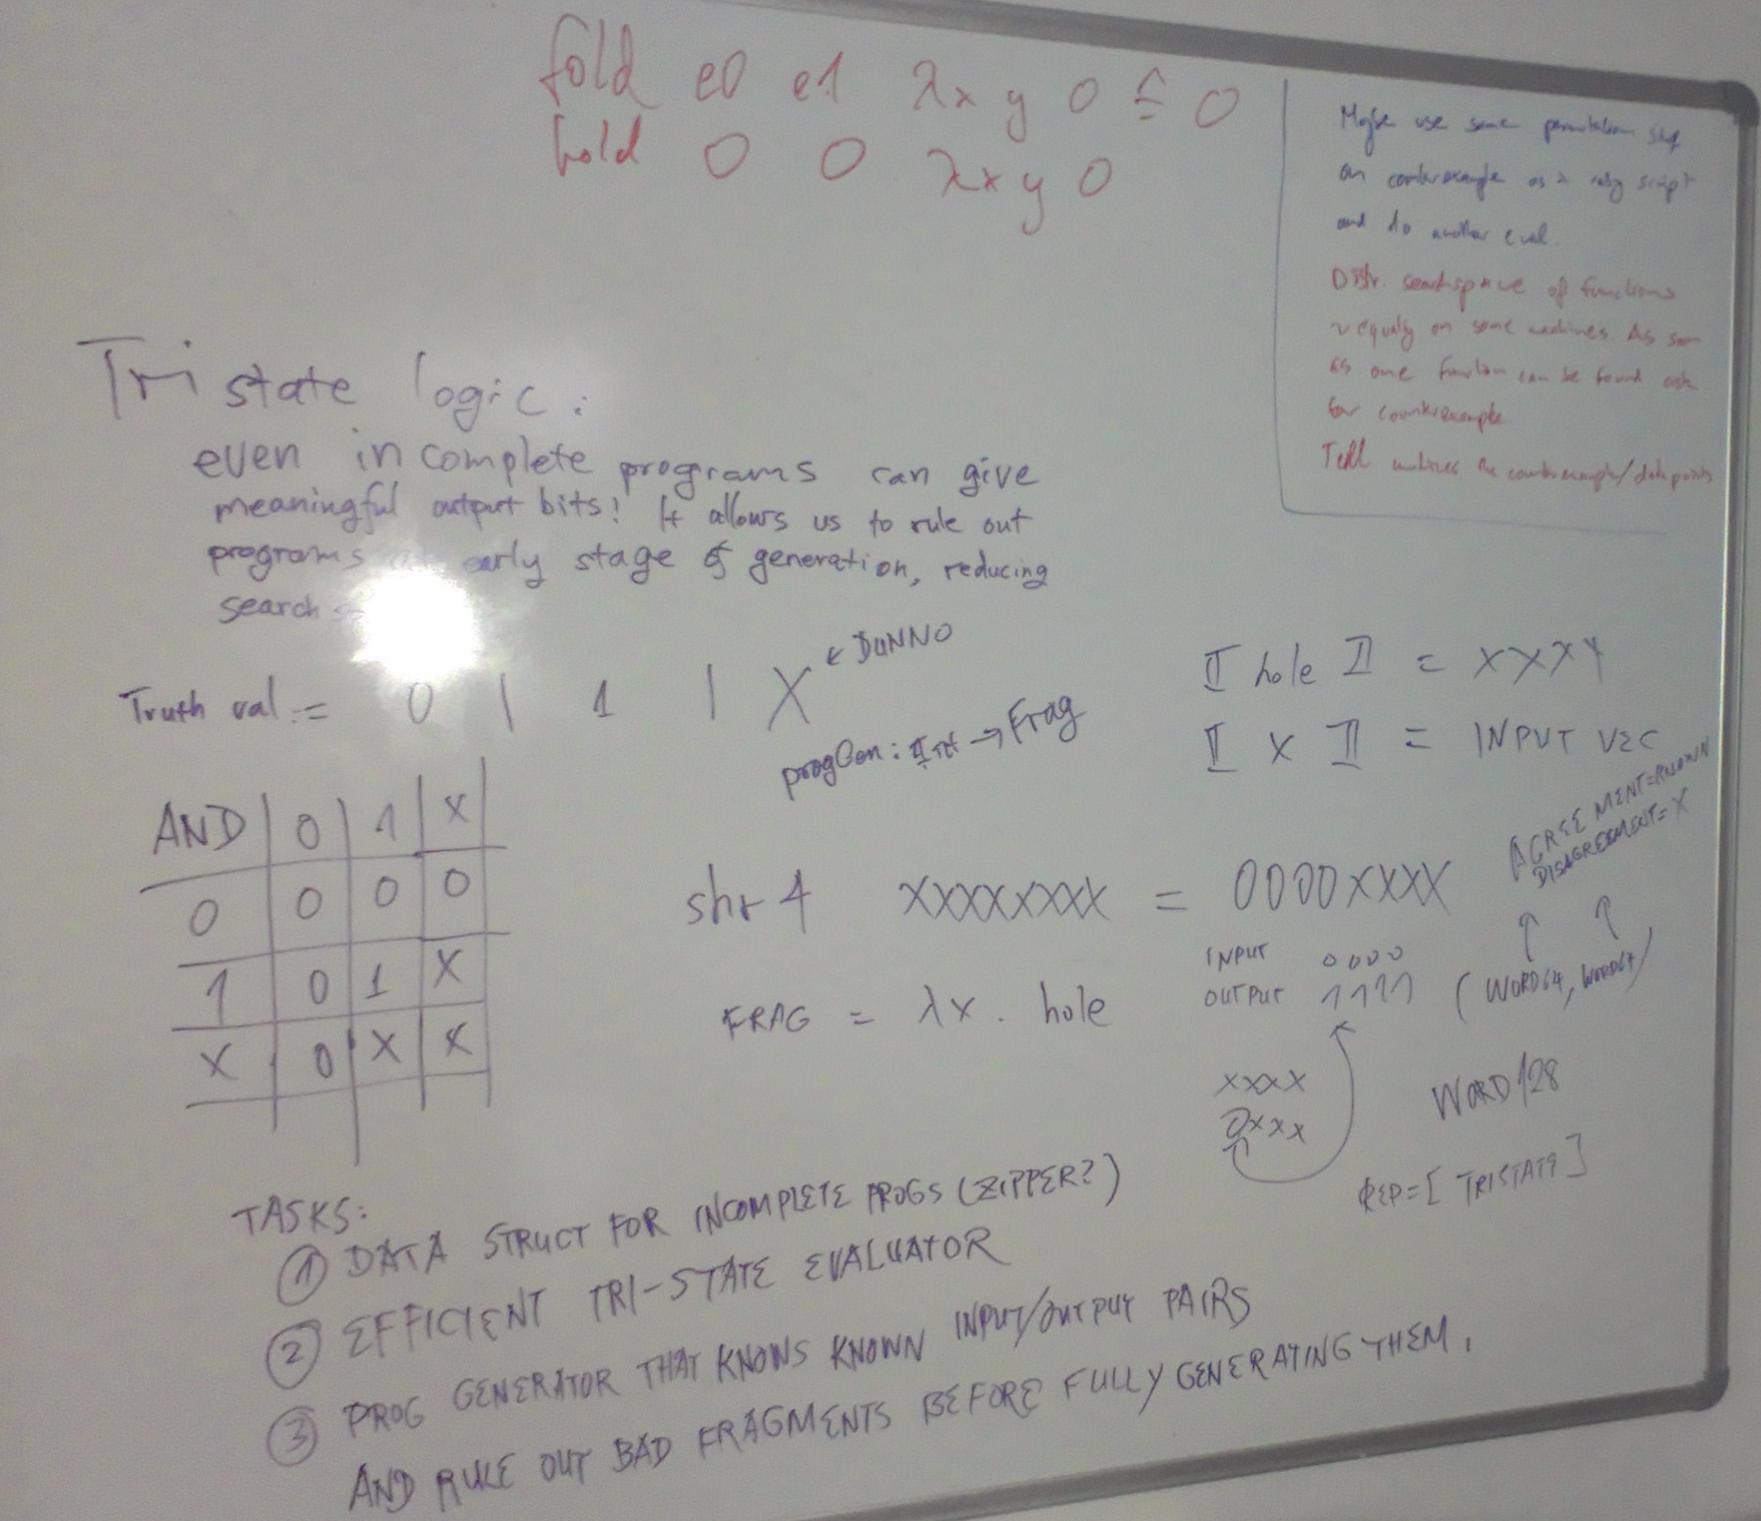 fold e0 e1 λx y 0 ≙ 0
fold 0 0 λx y 0
Maybe use some permutation stuff
on counterexample as a ruby script
and do another eval.
Distr. searchspace of functions
~ equally on some machines. As soon
as one function can be found ask
for counterexample
Tell machines the counterexample/datapoints
Tri state logic:
even incomplete programs can give
meaningful output bits! It allows us to rule out
programs early stage of generation, reducing
search
Truth val := 0 | 1 | X ← DUNNO
progGen: Int → Frag
⟦ hole ⟧ = XXXX
⟦ x ⟧ = INPUT VEC
AND | 0 | 1 | X
0 | 0 | 0 | 0
1 | 0 | 1 | X
X | 0 | X | X
shr 4 XXXXXXXX = 0000XXXX
AGREEMENT=KNOWN
DISAGREEMENT=X
INPUT 0000
OUTPUT 1111 (WORD64, WORD64)
FRAG = λx. hole
XXXX
0XXX
WORD128
REP=[TRISTATE]
TASKS:
① DATA STRUCT FOR INCOMPLETE PROGS (ZIPPER?)
② EFFICIENT TRI-STATE EVALUATOR
③ PROG GENERATOR THAT KNOWS KNOWN INPUT/OUTPUT PAIRS
AND RULE OUT BAD FRAGMENTS BEFORE FULLY GENERATING THEM.